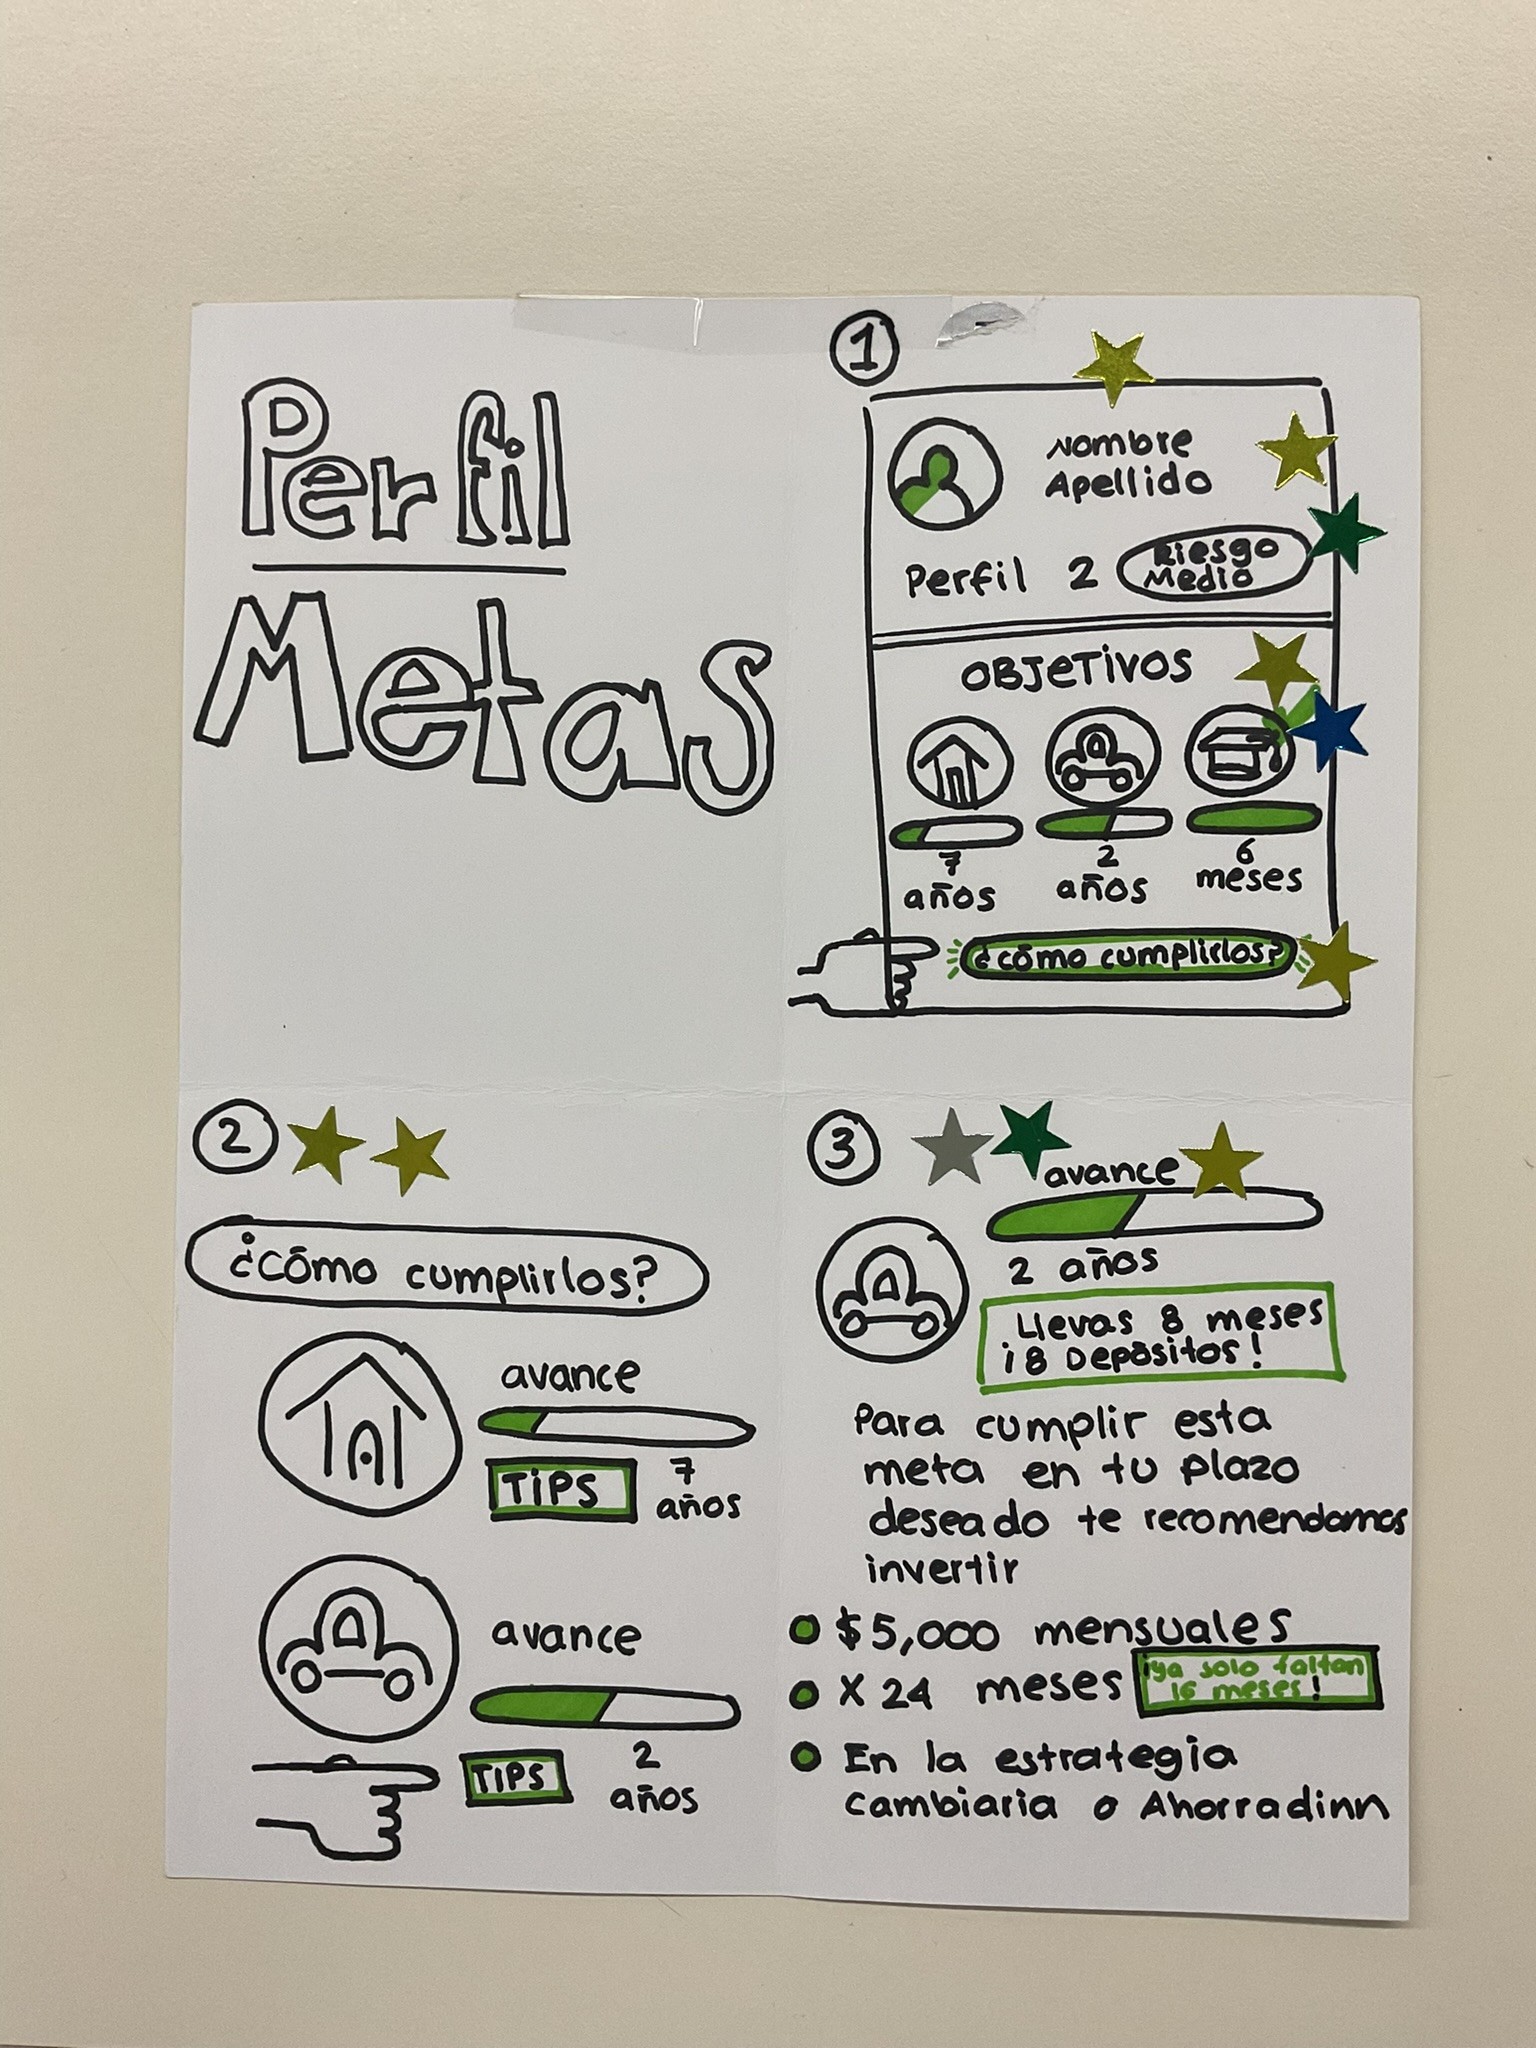 Perfil
Metas
1
Nombre
Apellido
Perfil 2
Riesgo
Medio
OBJETIVOS
7
años
2
años
6
meses
¿cómo cumplirlos?
2
¿cómo cumplirlos?
avance
TIPS
7
años
avance
TIPS
2
años
3
avance
2 años
Llevas 8 meses
¡8 Depósitos!
Para cumplir esta
meta en tu plazo
deseado te recomendamos
invertir
$5,000 mensuales
X 24 meses
¡ya solo faltan
16 meses!
En la estrategia
cambiaria o Ahorradinn